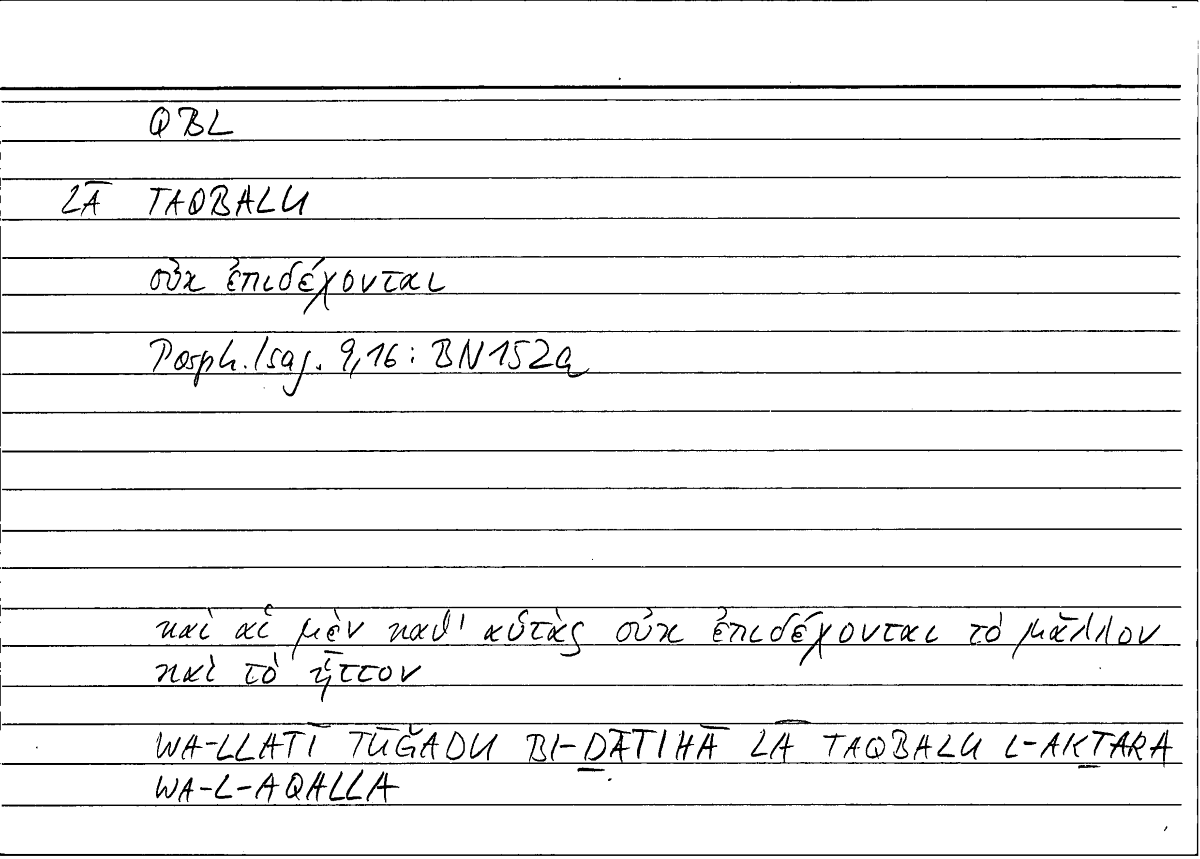 QBL
LĀ TAQBALU
οὐκ ἐπιδέχονται
Porph. Isag. 9,16 : BN152a
καὶ αἱ μὲν καθ' αὑτὰς οὐκ ἐπιδέχονται τὸ μᾶλλον
καὶ τὸ ἧττον
WA-LLATĪ TŪǦADU BI-ḎĀTIHĀ LĀ TAQBALU L-AKṮARA
WA-L-AQALLA